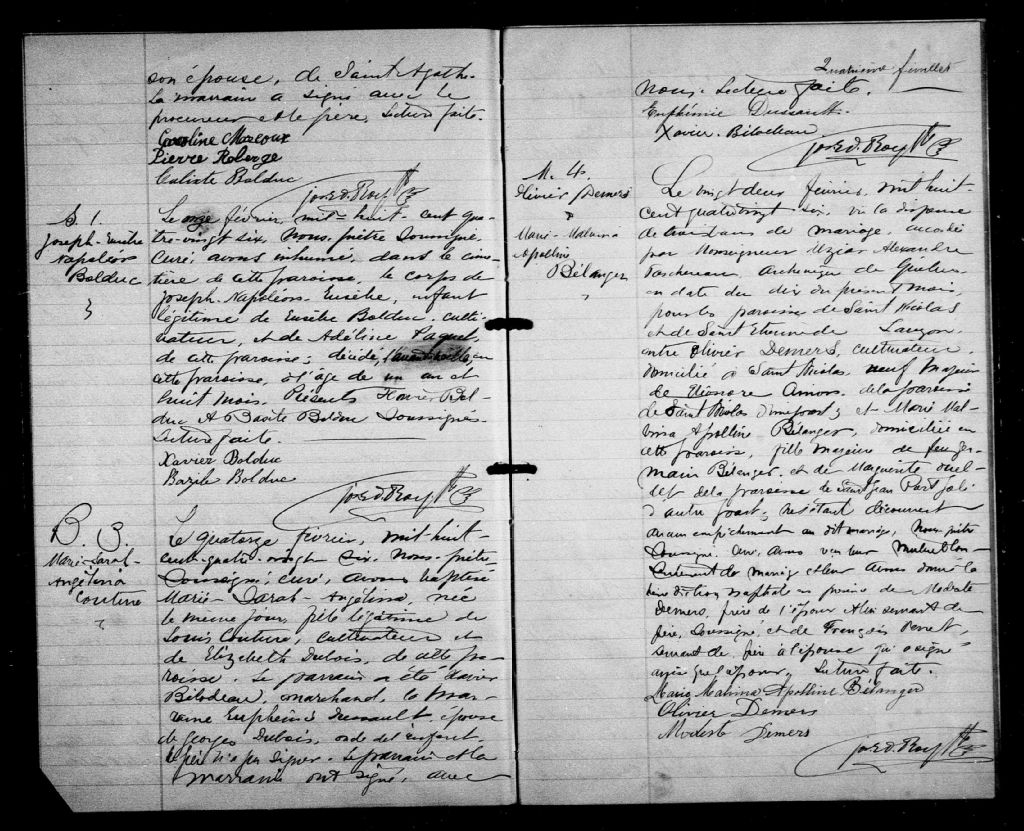 son épouse, de Saint Agathe.
la marraine a signé avec le
procureur et le père, Lecture faite.
Caroline Marcoux
Pierre Roberge
Calixte Bolduc
Jos. Ed. Roy Ptre
S. 1.
Joseph-Eusèbe
Napoléon
Bolduc
Le onze février, mil-huit-cent qua-
tre-vingt six, Nous, prêtre soussigné,
curé, avons inhumé, dans le cime-
tière de cette paroisse, le corps de
Joseph-Napoléon-Eusèbe, enfant
légitime de Eusèbe Bolduc, culti-
vateur, et de Adéline Paquet,
de cette paroisse; décédé, en
cette paroisse, à l'âge de un an et
huit mois. Présents Xavier Bol-
duc et Basile Bolduc soussignés.
Lecture faite.
Xavier Bolduc
Bazile Bolduc
Jos. Ed. Roy Ptre
B. 3.
Marie-Sarah-
Angélina
Couture
Le quatorze février, mil-huit-
cent-quatre-vingt six, Nous, prêtre
soussigné, curé, avons baptisé
Marie-Sarah-Angélina, née
le même jour, fille légitime de
Louis Couture, cultivateur et
de Elizabeth Dubois, de cette pa-
roisse. Le parrain a été Xavier
Bilodeau, marchand, la mar-
raine Euphémie Dussault, épouse
de Georges Dubois, oncle de l'enfant.
le père n'a pu signer. Le parrain et la
marraine ont signé, avec
Quatrième feuillet
nous. Lecture faite.
Euphémie Dussault
Xavier Bilodeau
Jos. Ed. Roy Ptre
M. 4.
Olivier Demers
Marie-Malvina
Apolline
Bélanger
Le vingt deux février, mil huit
cent quatrevingt-six, vu la dispense
de bans de mariage, accordée
par Monseigneur Elzéar Alexandre
Taschereau, Archevêque de Québec
en date du dix du présent mois,
pour les paroisses de Saint Nicolas
et de Saint Etienne de Lauzon,
entre Olivier Demers, cultivateur,
domicilié à Saint Nicolas, veuf majeur
de Eléonore de la paroisse
de Saint Nicolas d'une part; et Marie Mal-
vina Apolline Bélanger, domiciliée en
cette paroisse, fille majeure de feu Ger-
main Bélanger, et de Marguerite Ouel-
let de la paroisse de Saint Jean Port Joli
d'autre part; ne s'étant découvert
aucun empêchement au dit mariage, Nous prêtre
soussigné, curé, avons reçu leur mutuel con-
sentement de mariage et leur avons donné la
bénédiction nuptiale en présence de Modeste
Demers, frère de l'époux servant de
père, soussigné, et de François
servant de père à l'épouse qui a signé
ainsi que l'époux, Lecture faite.
Marie Malvina Apolline Bélanger
Olivier Demers
Modeste Demers
Jos. Ed. Roy Ptre